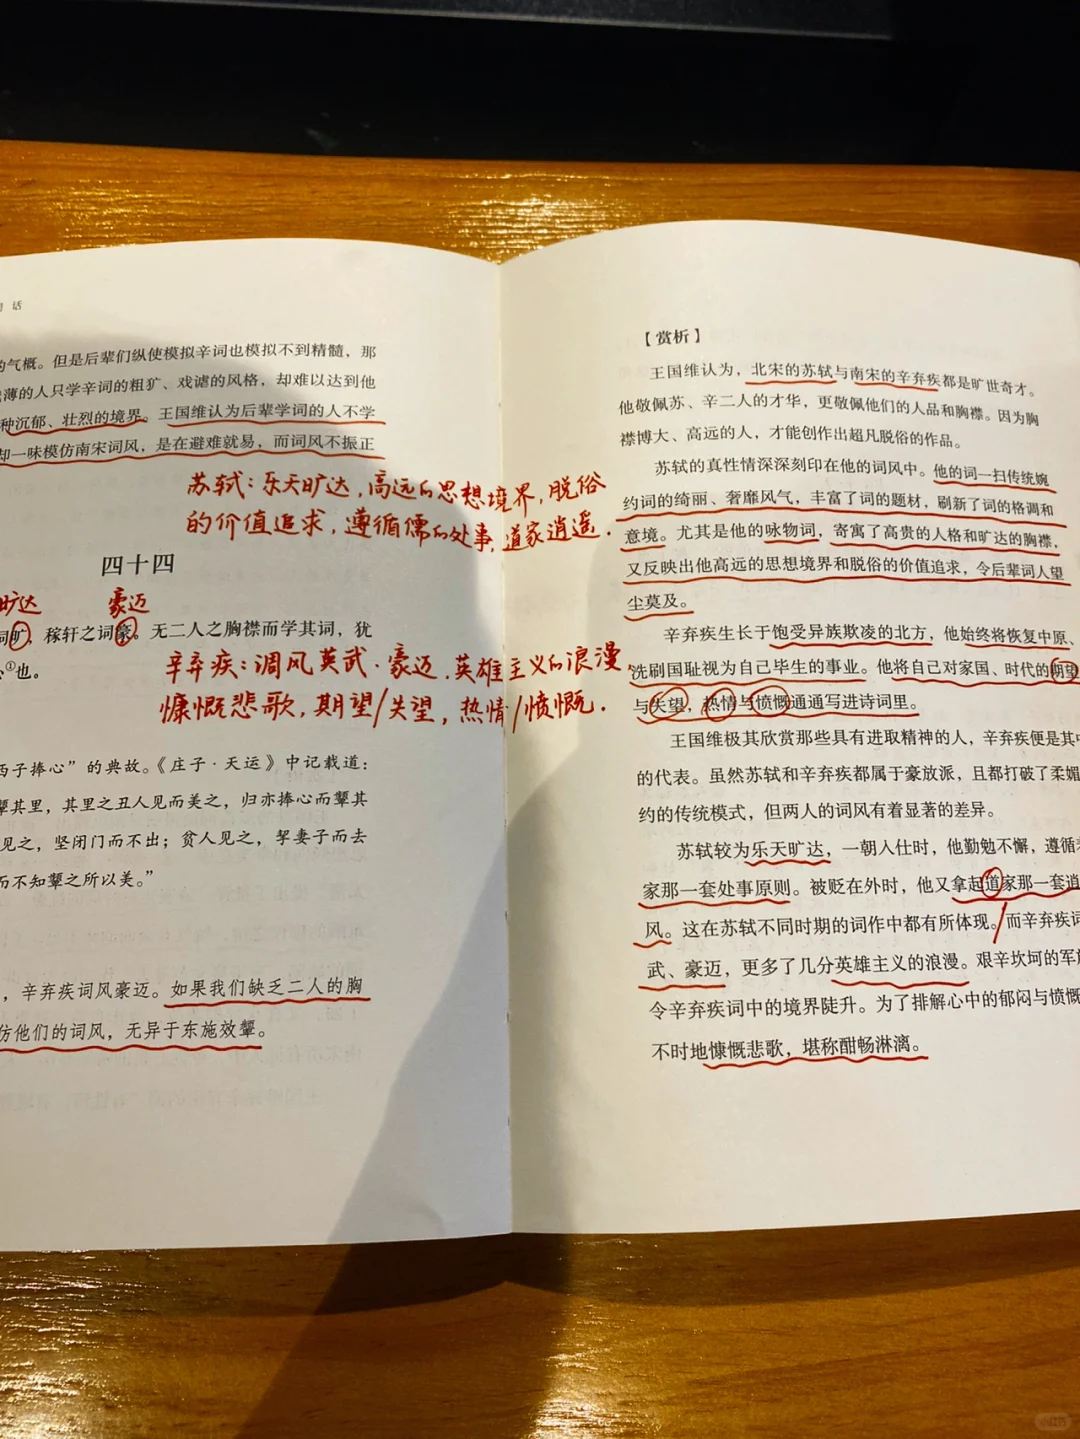 话
的气概。但是后辈们纵使模拟辛词也模拟不到精髓，那
薄的人只学辛词的粗犷、戏谑的风格，却难以达到他
种沉郁、壮烈的境界。王国维认为后辈学词的人不学
却一味模仿南宋词风，是在避难就易，而词风不振正
苏轼：乐天旷达，高远的思想境界，脱俗
的价值追求，遵循儒的处事，道家逍遥．
四十四
旷达 豪迈
词旷，稼轩之词豪。无二人之胸襟而学其词，犹
心①也。
辛弃疾：调风英武．豪迈．英雄主义的浪漫．
慷慨悲歌，期望/失望，热情/愤慨．
西子捧心”的典故。《庄子·天运》中记载道：
颦其里，其里之丑人见而美之，归亦捧心而颦其
见之，坚闭门而不出；贫人见之，挈妻子而去
而不知颦之所以美。”
，辛弃疾词风豪迈。如果我们缺乏二人的胸
仿他们的词风，无异于东施效颦。
【赏析】
王国维认为，北宋的苏轼与南宋的辛弃疾都是旷世奇才。
他敬佩苏、辛二人的才华，更敬佩他们的人品和胸襟。因为胸
襟博大、高远的人，才能创作出超凡脱俗的作品。
苏轼的真性情深深刻印在他的词风中。他的词一扫传统婉
约词的绮丽、奢靡风气，丰富了词的题材，刷新了词的格调和
意境。尤其是他的咏物词，寄寓了高贵的人格和旷达的胸襟，
又反映出他高远的思想境界和脱俗的价值追求，令后辈词人望
尘莫及。
辛弃疾生长于饱受异族欺凌的北方，他始终将恢复中原、
洗刷国耻视为自己毕生的事业。他将自己对家国、时代的期望
与失望，热情与愤慨通通写进诗词里。
王国维极其欣赏那些具有进取精神的人，辛弃疾便是其中
的代表。虽然苏轼和辛弃疾都属于豪放派，且都打破了柔媚
约的传统模式，但两人的词风有着显著的差异。
苏轼较为乐天旷达，一朝入仕时，他勤勉不懈，遵循
家那一套处事原则。被贬在外时，他又拿起道家那一套逍
风。这在苏轼不同时期的词作中都有所体现。/而辛弃疾词
武、豪迈，更多了几分英雄主义的浪漫。艰辛坎坷的军旅
令辛弃疾词中的境界陡升。为了排解心中的郁闷与愤慨
不时地慷慨悲歌，堪称酣畅淋漓。
小红书